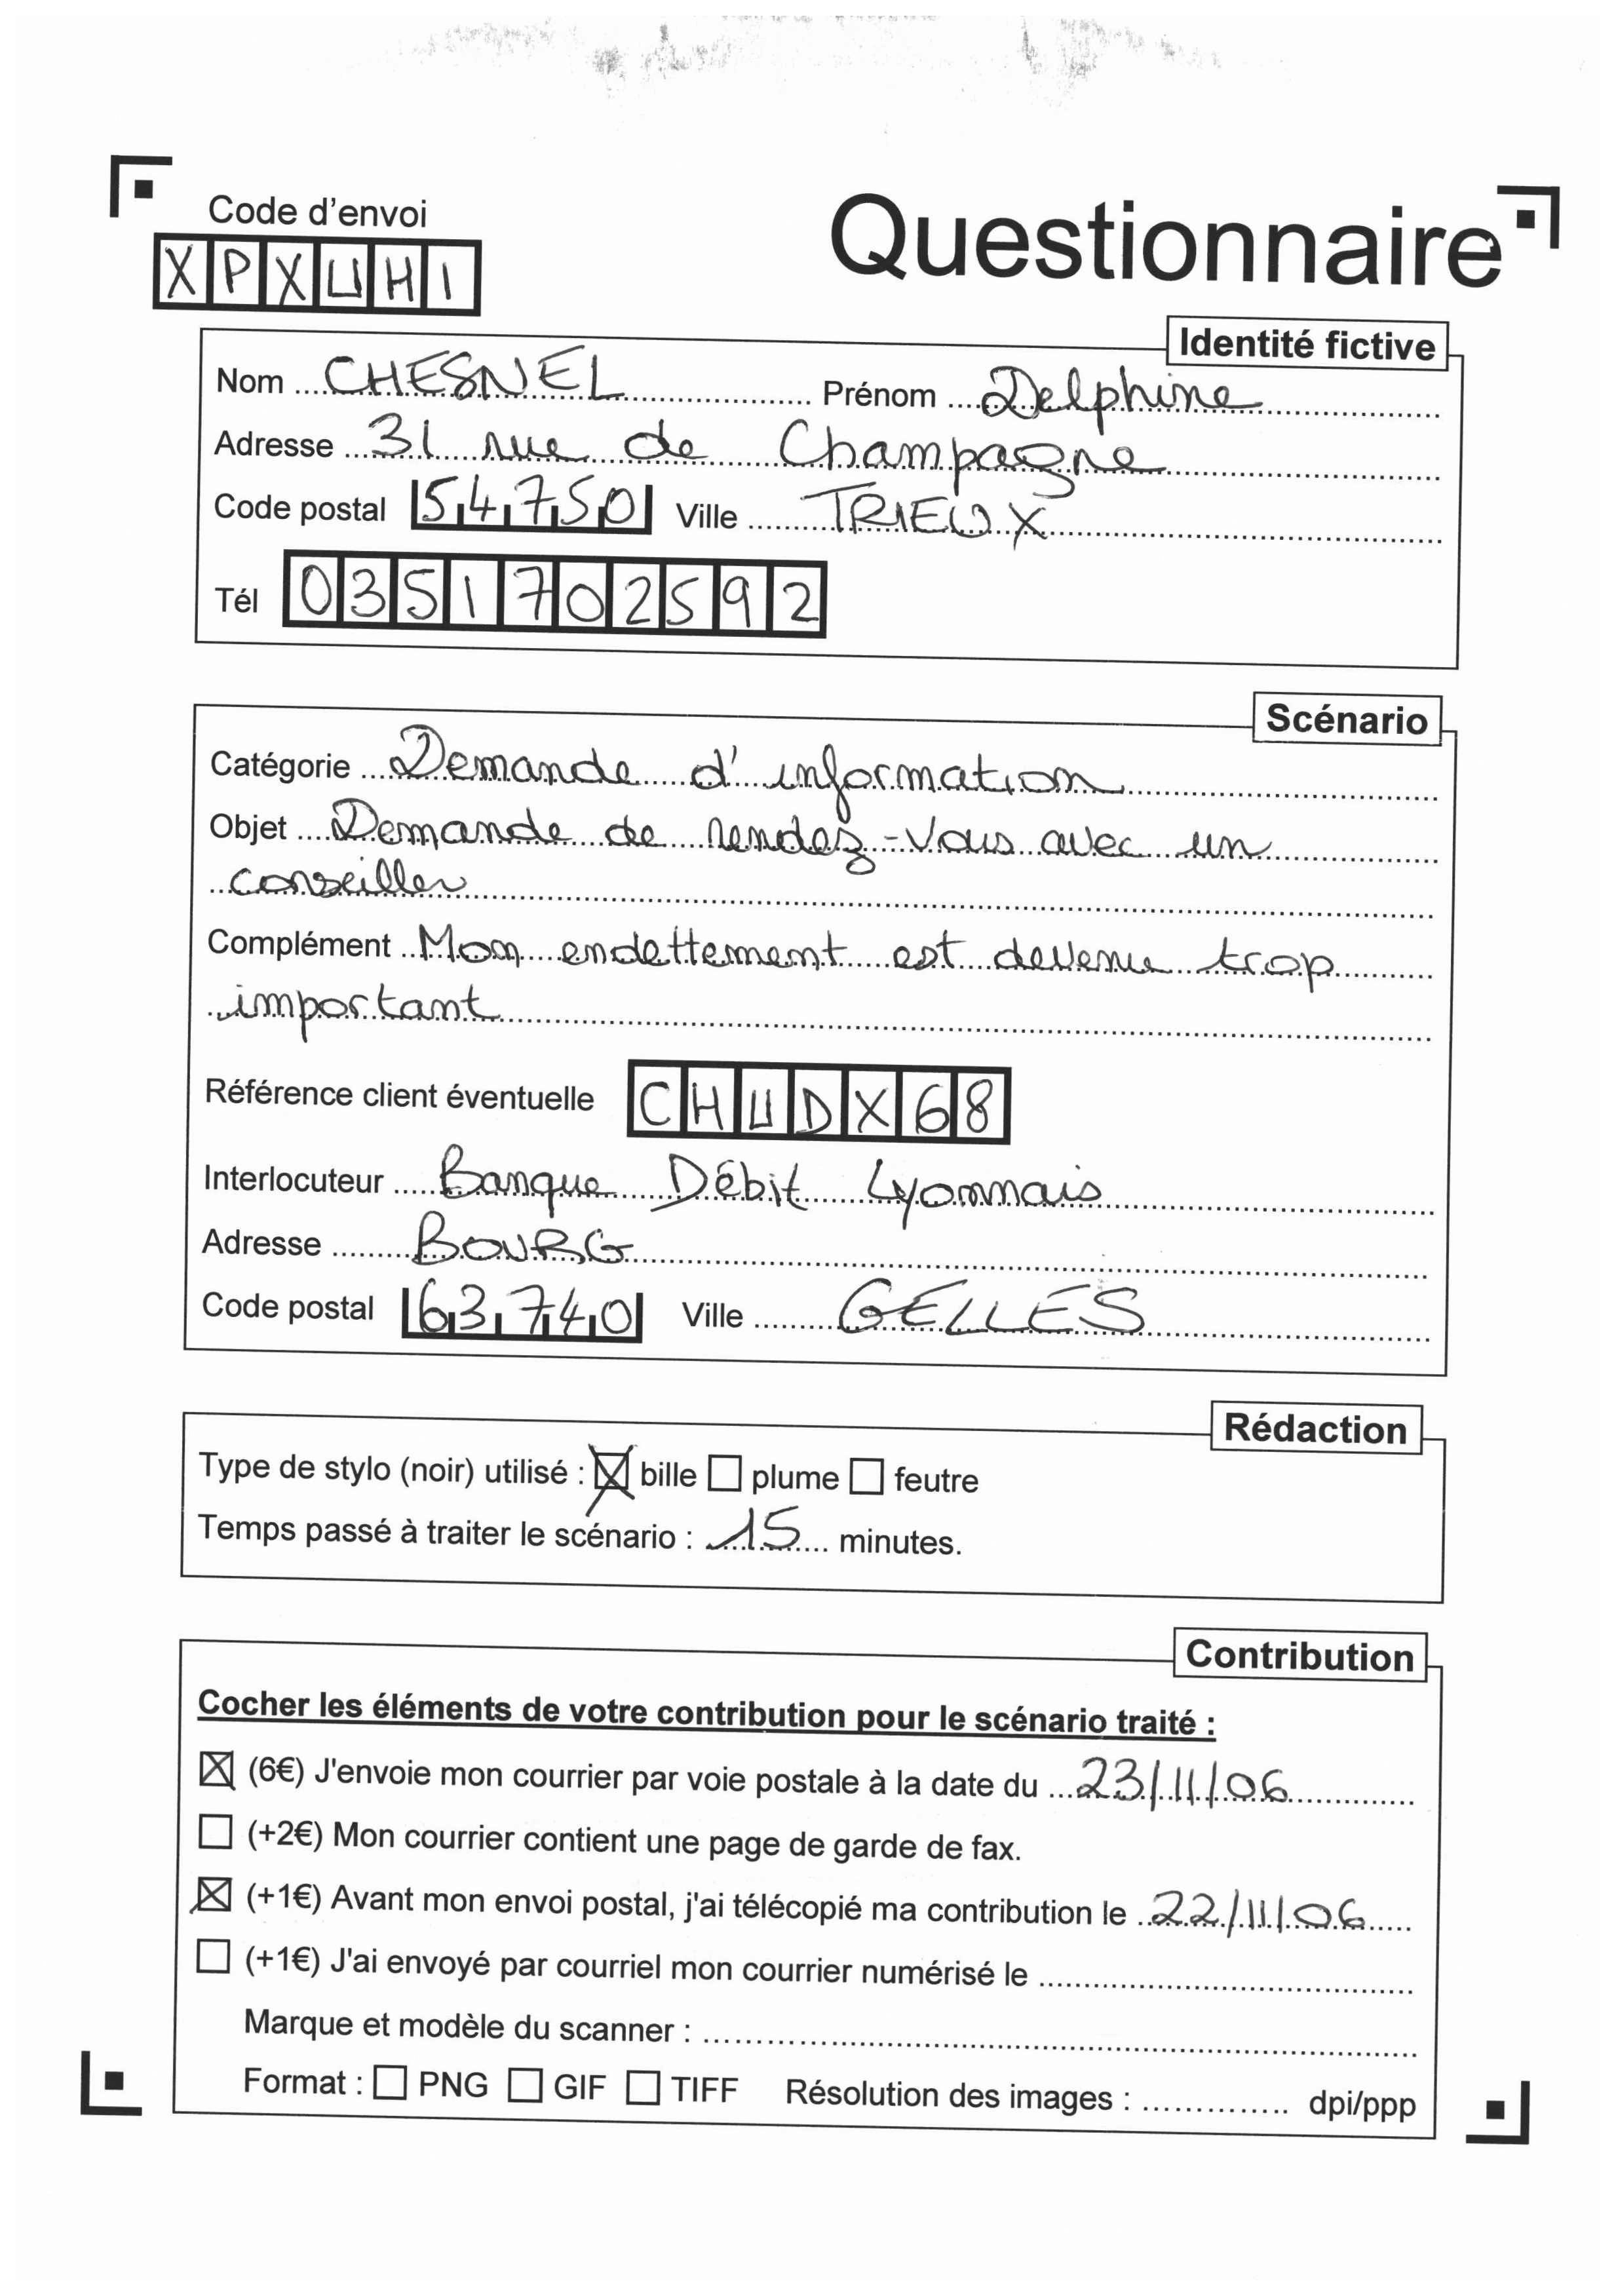 Code d'envoi
Questionnaire
XPXUHI
Identité fictive
Nom CHESNEL Prénom Delphine
Adresse 31 rue de Champagne
Code postal 54750 Ville TRIEUX
Tél 0351702592
Scénario
Catégorie Demande d'information
Objet Demande de rendez-vous avec un
conseiller
Complément Mon endettement est devenu trop
important
Référence client éventuelle CHUDX68
Interlocuteur Banque Débit Lyonnais
Adresse BOURG
Code postal 63740 Ville GELLES
Rédaction
Type de stylo (noir) utilisé : ☒ bille ☐ plume ☐ feutre
Temps passé à traiter le scénario : 15 minutes.
Contribution
Cocher les éléments de votre contribution pour le scénario traité :
☒ (6€) J'envoie mon courrier par voie postale à la date du 23/11/06
☐ (+2€) Mon courrier contient une page de garde de fax.
☒ (+1€) Avant mon envoi postal, j'ai télécopié ma contribution le 22/11/06
☐ (+1€) J'ai envoyé par courriel mon courrier numérisé le
Marque et modèle du scanner :
Format : ☐ PNG ☐ GIF ☐ TIFF Résolution des images : dpi/ppp